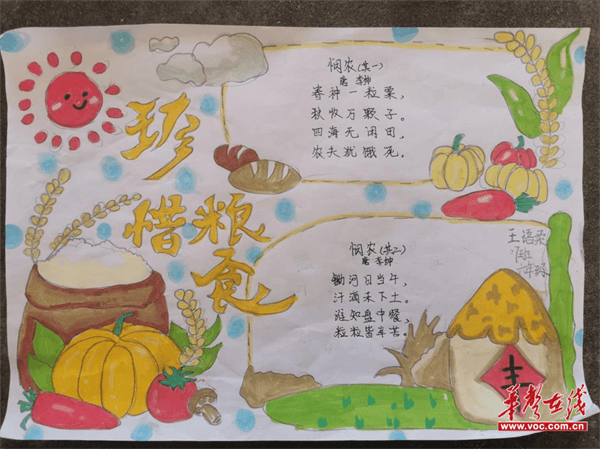 珍
惜粮
食
悯农(其一)
唐 李绅
春种一粒粟,
秋收万颗子。
四海无闲田,
农夫犹饿死。
悯农(其二)
唐 李绅
锄河日当午,
汗滴禾下土。
谁知盘中
粒粒皆辛苦。
王语
班
丰
华声在线
www.voc.com.cn